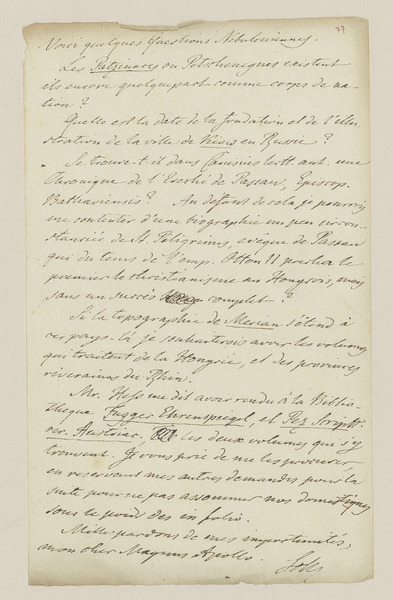 27
Voici quelques Questions Nibelouiennes.
Les Patzinaces ou Petscheneques existent
ils encore quelquepart comme corps de na-
tion?
Quelle est la date de la fondation et de l'illu-
stration de la ville de Kiow en Russie?
Se trouve-t-il dans Canisius lectt. ant. une
Chronique de l'Evêché de Passau, Episcop.
Bathaviensis? Au defaut de cela je pourrois
me contenter d'une biographie un peu circon-
stanciée de St. Piligrinus, évêque de Passau
qui du tems de l'emp. Otton II precha le
premier le christianisme au Hongrois, mais
sans un succès complet?
Si la topographie de Merian s'étend à
ces pays-là je souhaiterois avoir les volumes
qui traitent de la Hongrie, et des provinces
riveraines du Rhin.
Mr. Hess me dit avoir rendu à la Biblio-
theque Fugger Ehrenspiegel, et Pez Scriptt.
rer. Austriac. les deux volumes qui s'y
trouvent. Je vous prie de me les procurer,
en reservant mes autres demandes pour la
suite pour ne pas assommer nos domestiques
sous le poids des in folio.
Mille pardons de mes importunités,
mon cher Magnus Apollo.